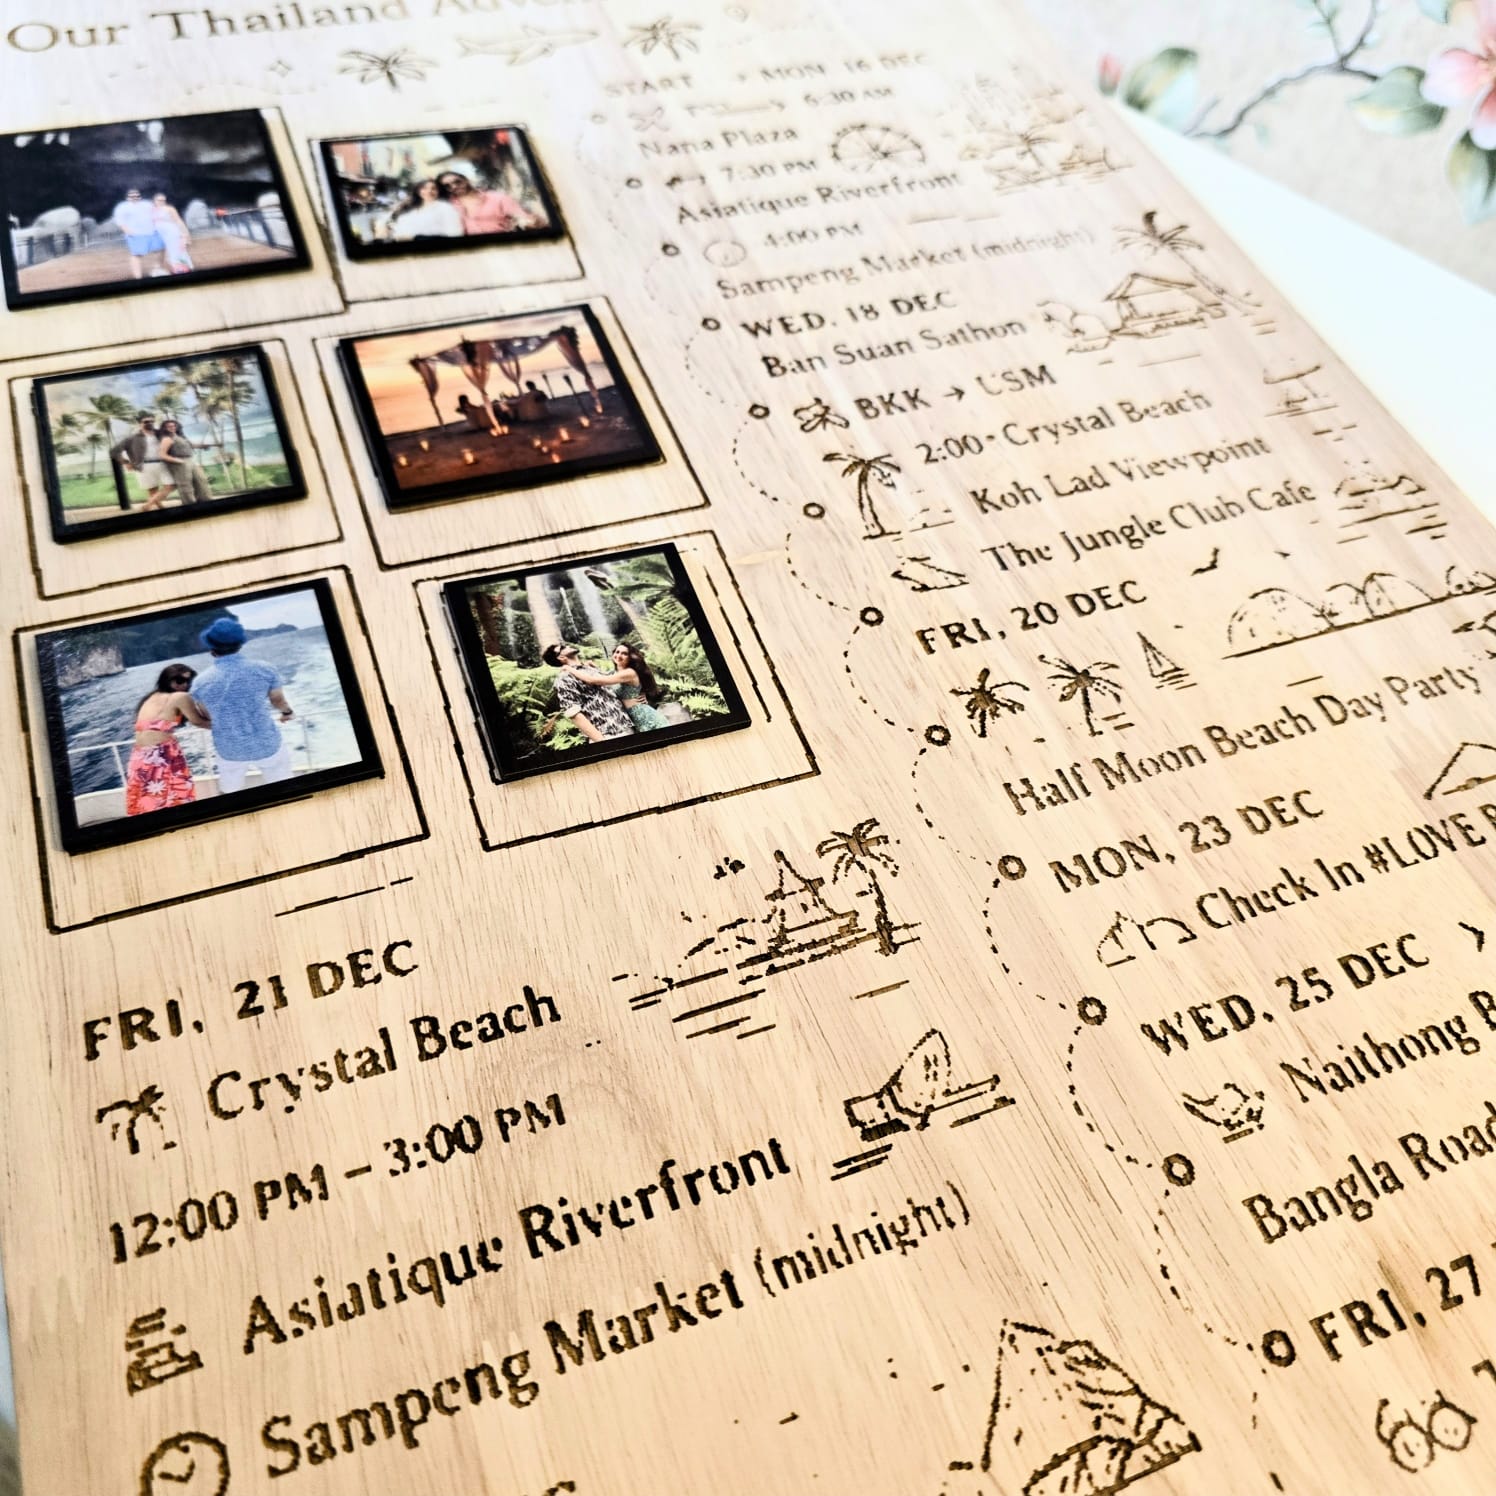 Our Thailand
START MON 16 DEC
6:30 AM
Nana Plaza
7:30 PM
Asiatique Riverfront
4:00 PM
Sampeng Market (midnight)
WED. 18 DEC
Ban Suan Sathon
BKK → USM
2:00 · Crystal Beach
Koh Lad Viewpoint
The Jungle Club Cafe
FRI, 20 DEC
Half Moon Beach Day Party
MON, 23 DEC
Check In #LOVE
WED. 25 DEC >
Naithong
Bangla Road
FRI, 27
FRI, 21 DEC
Crystal Beach
12:00 PM – 3:00 PM
Asiatique Riverfront
Sampeng Market (midnight)